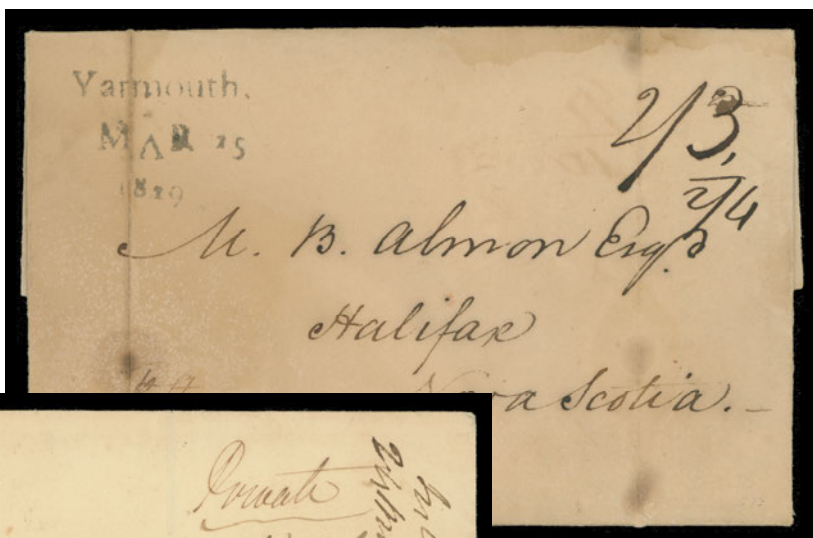 Yarmouth.
MAR 25
1829
2/3,
2/4
M. B. Almon Esq.
Halifax
Nova Scotia.
Private